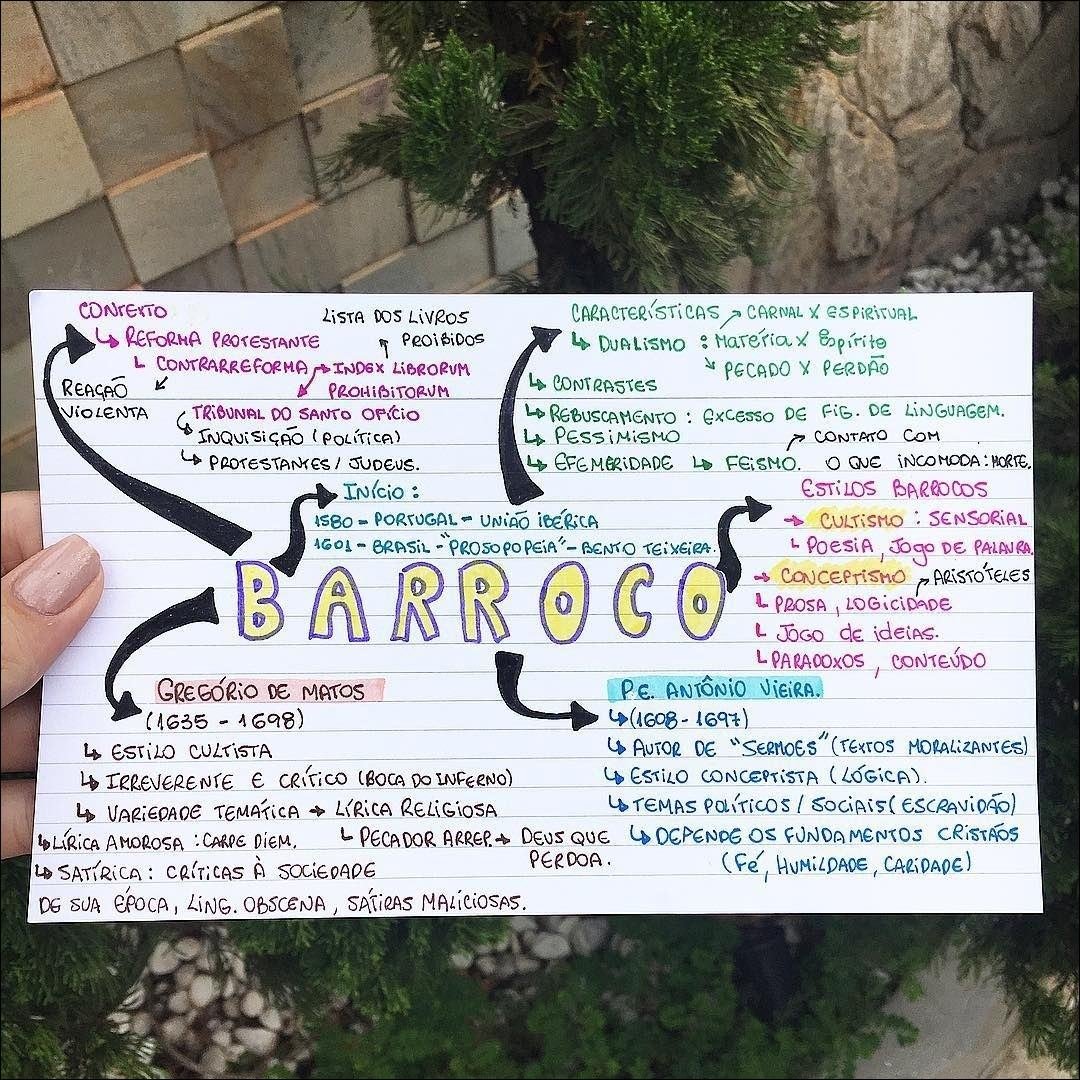 CONTEXTO
↳ REFORMA PROTESTANTE
↳ CONTRARREFORMA → INDEX LIBRORUM
PROHIBITORUM
LISTA DOS LIVROS
PROIBIDOS
REAÇÃO
VIOLENTA
TRIBUNAL DO SANTO OFÍCIO
↳ INQUISIÇÃO (POLÍTICA)
↳ PROTESTANTES / JUDEUS.
CARACTERÍSTICAS
↳ DUALISMO : MATÉRIA X ESPÍRITO
CARNAL X ESPIRITUAL
PECADO X PERDÃO
↳ CONTRASTES
↳ REBUSCAMENTO : EXCESSO DE FIG. DE LINGUAGEM.
↳ PESSIMISMO
↳ EFEMERIDADE ↳ FEÍSMO.
CONTATO COM
O QUE INCOMODA : MORTE.
INÍCIO :
1580 - PORTUGAL - UNIÃO IBÉRICA
1601 - BRASIL - "PROSOPOPEIA" - BENTO TEIXEIRA.
ESTILOS BARROCOS
→ CULTISMO : SENSORIAL
↳ POESIA, JOGO DE PALAVRA.
→ CONCEPTISMO
ARISTÓTELES
↳ PROSA, LOGICIDADE
↳ JOGO DE IDEIAS.
↳ PARADOXOS, CONTEÚDO
BARROCO
GREGÓRIO DE MATOS
(1635 - 1698)
↳ ESTILO CULTISTA
↳ IRREVERENTE E CRÍTICO (BOCA DO INFERNO)
↳ VARIEDADE TEMÁTICA → LÍRICA RELIGIOSA
↳ PECADOR ARREP. → DEUS QUE
PERDOA.
↳ LÍRICA AMOROSA : CARPE DIEM.
↳ SATÍRICA : CRÍTICAS À SOCIEDADE
DE SUA ÉPOCA, LING. OBSCENA, SÁTIRAS MALICIOSAS.
PE. ANTÔNIO VIEIRA.
↳ (1608 - 1697)
↳ AUTOR DE "SERMOES" (TEXTOS MORALIZANTES)
↳ ESTILO CONCEPTISTA (LÓGICA).
↳ TEMAS POLÍTICOS / SOCIAIS (ESCRAVIDÃO)
↳ DEPENDE OS FUNDAMENTOS CRISTÃOS
(FÉ, HUMILDADE, CARIDADE)